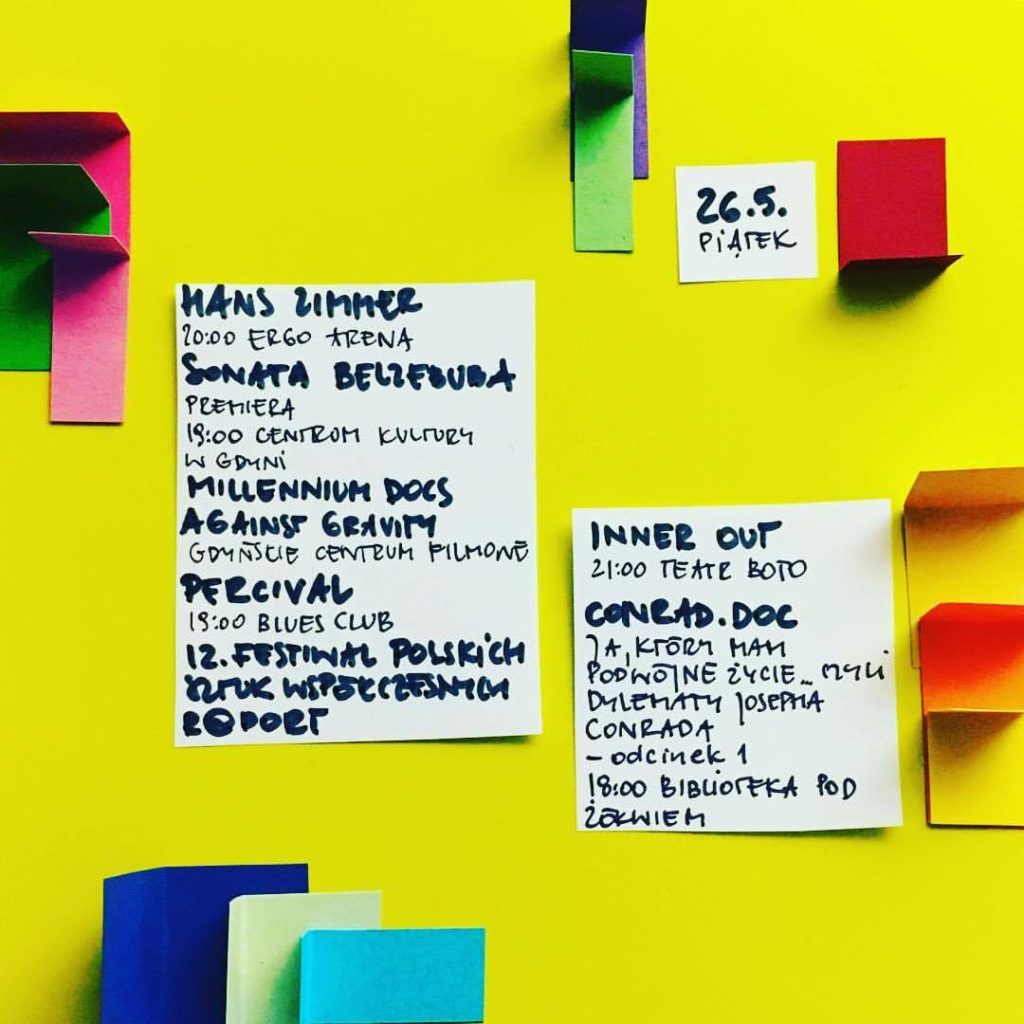 26.5.
PIĄTEK
HANS ZIMMER
20:00 ERGO ARENA
SONATA BELZEBUBA
PREMIERA
19:00 CENTRUM KULTURY
W GDYNI
MILLENNIUM DOCS
AGAINST GRAVITY
GDYŃSKIE CENTRUM FILMOWE
PERCIVAL
19:00 BLUES CLUB
12. FESTIWAL POLSKICH
SZTUK WSPÓŁCZESNYCH
R@PORT
INNER OUT
21:00 TEATR BOTO
CONRAD.DOC
JA, KTÓRY MAM
PODWÓJNE ŻYCIE... CZYLI
DYLEMATY JOSEPHA
CONRADA
- odcinek 1
18:00 BIBLIOTEKA POD
ŻÓŁWIEM